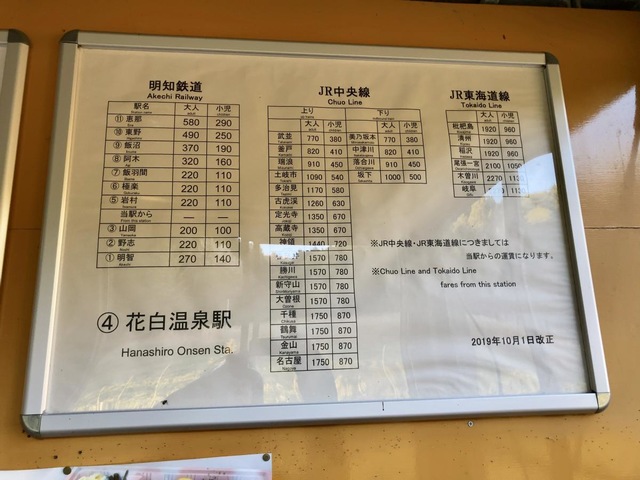 明知鉄道
Akechi Railway
駅名 大人 小児
⑪ 恵那 580 290
⑩ 東野 490 250
⑨ 飯沼 370 190
⑧ 阿木 320 160
⑦ 飯羽間 220 110
⑥ 極楽 220 110
⑤ 岩村 220 110
当駅から — —
From this station
③ 山岡 200 100
② 野志 220 110
① 明智 270 140
④ 花白温泉駅
Hanashiro Onsen Sta.
JR中央線
Chuo Line
上り 下り
大人 小児 大人 小児
武並 770 380 美乃坂本 770 380
釜戸 820 410 中津川 820 410
瑞浪 910 450 落合川 910 450
土岐市 1090 540 坂下 1000 500
多治見 1170 580
古虎渓 1260 630
定光寺 1350 670
高蔵寺 1350 670
神領 1440 720
1570 780
勝川 1570 780
新守山 1570 780
大曽根 1570 780
千種 1750 870
鶴舞 1750 870
金山 1750 870
名古屋 1750 870
JR東海道線
Tokaido Line
大人 小児
枇杷島 1920 960
清洲 1920 960
稲沢 1920 960
尾張一宮 2100 1050
木曽川 2270
岐阜
※JR中央線・JR東海道線につきましては
当駅からの運賃になります。
※Chuo Line and Tokaido Line
fares from this station
2019年10月1日改正